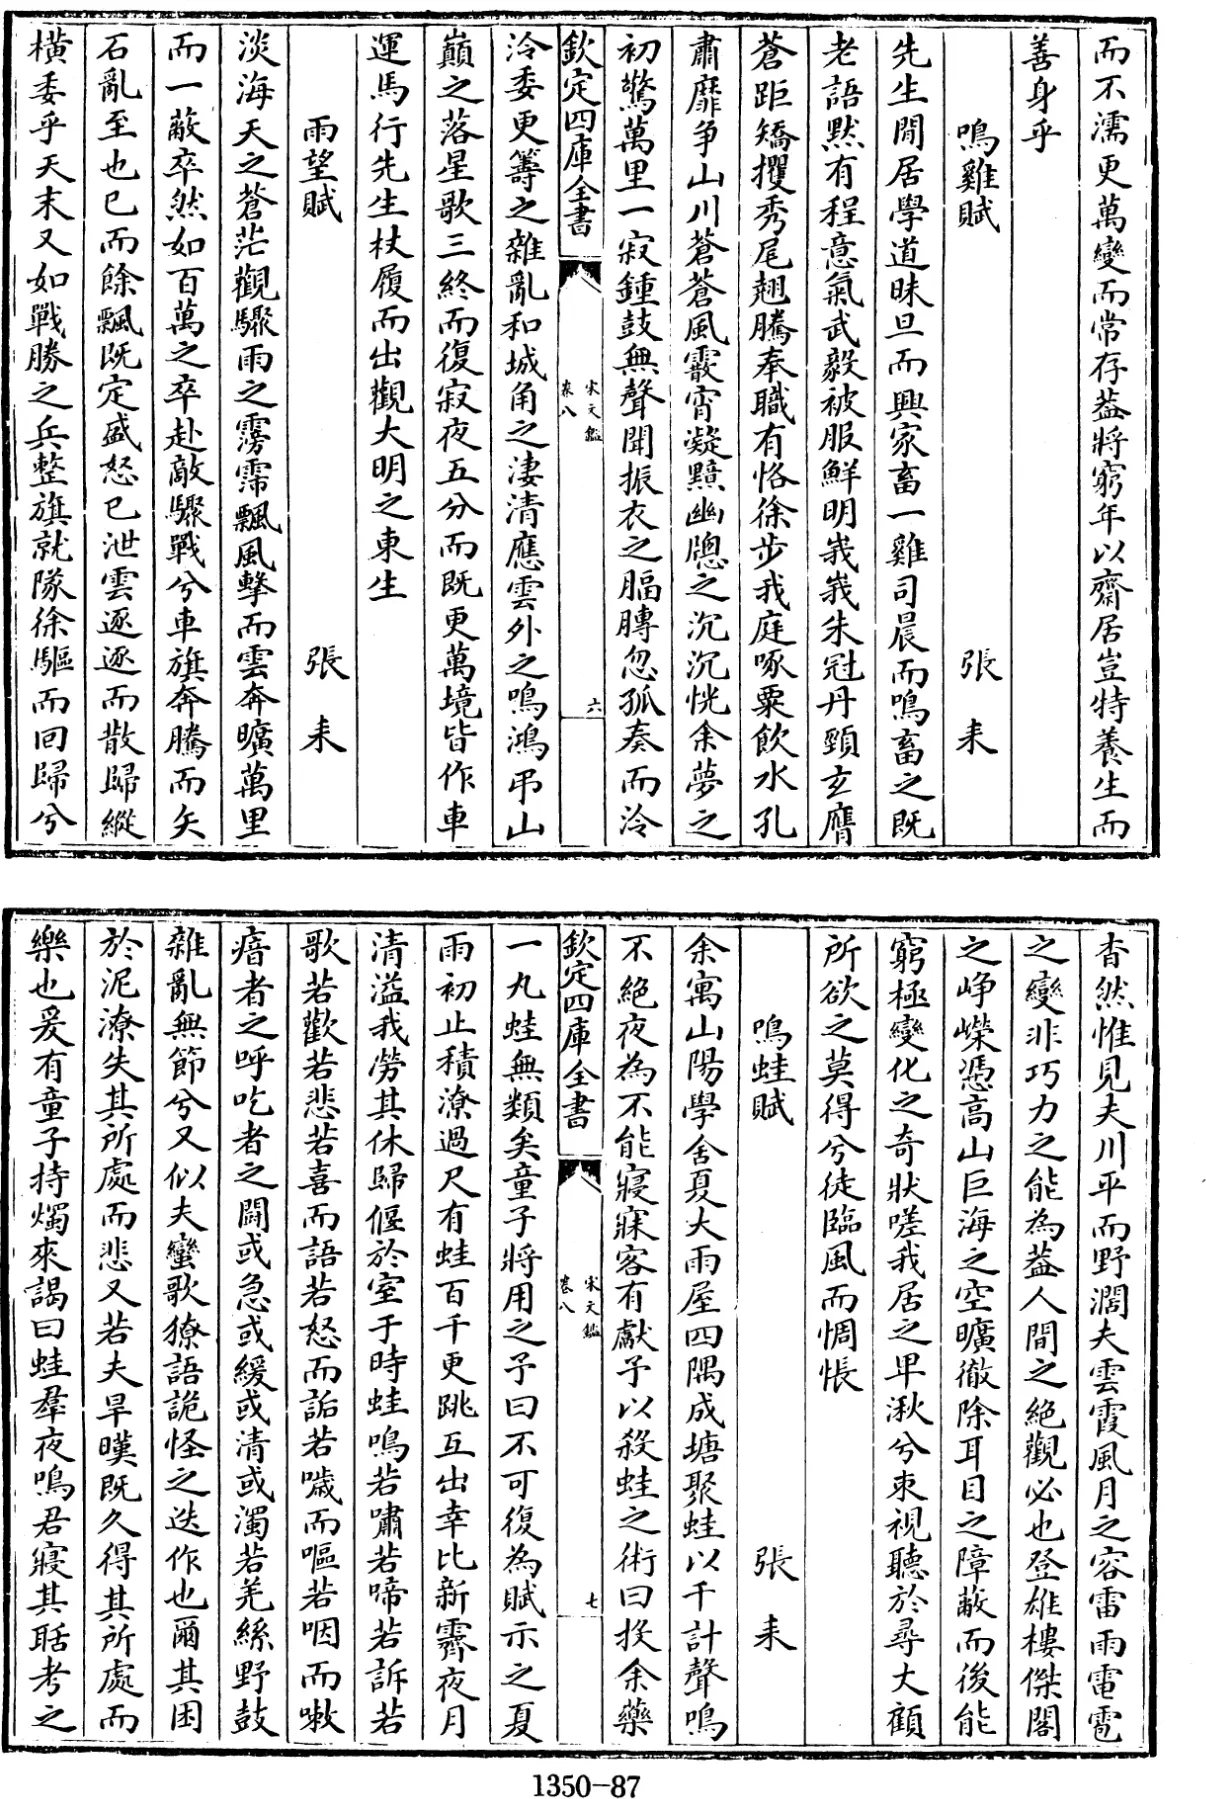 而不濡更萬變而常存葢將窮年以齋居豈特養生而
善身乎
鳴雞賦 張耒
先生閒居學道昧旦而興家畜一雞司晨而鳴畜之既
老語黙有程意氣武毅被服鮮明峩峩朱冠丹頸玄膺
蒼距矯攫秀尾翹騰奉職有恪徐步我庭啄粟飲水孔
肅靡爭山川蒼蒼風霰宵凝黯幽牕之沉沉恍余夢之
初驚萬里一寂鍾鼓無聲聞振衣之腷膊忽孤奏而泠
欽定四庫全書 宋文鑑 卷八 六
泠委更籌之雜亂和城角之淒清應雲外之鳴鴻弔山
巔之落星歌三終而復寂夜五分而既更萬境皆作車
運馬行先生杖履而出觀大明之東生
雨望賦 張耒
淡海天之蒼茫觀驟雨之霶霈飄風擊而雲奔曠萬里
而一蔽卒然如百萬之卒赴敵驟戰兮車旗奔騰而矢
石亂至也已而餘飄既定盛怒已泄雲逐逐而散歸縱
橫委乎天末又如戰勝之兵整旗就隊徐驅而回歸兮
杳然惟見夫川平而野濶夫雲霞風月之容雷雨電雹
之變非巧力之能為葢人間之絶觀必也登雄樓傑閣
之崢嶸憑高山巨海之空曠徹除耳目之障蔽而後能
窮極變化之奇狀嗟我居之卑湫兮束視聽於尋丈顧
所欲之莫得兮徒臨風而惆悵
鳴蛙賦 張耒
余寓山陽學舍夏大雨屋四隅成塘聚蛙以千計聲鳴
不絶夜為不能寢寐客有獻予以殺蛙之術曰投余藥
欽定四庫全書 宋文鑑 卷八 七
一丸蛙無類矣童子將用之予曰不可復為賦示之夏
雨初止積潦過尺有蛙百千更跳互出幸比新霽夜月
清溢我勞其休歸偃於室于時蛙鳴若嘯若啼若訴若
歌若歡若悲若喜而語若怒而詬若噦而嘔若咽而嗽
瘖者之呼吃者之鬭或急或緩或清或濁若羌絲野鼓
雜亂無節兮又似夫蠻歌獠語詭怪之迭作也爾其困
於泥潦失其所處而悲又若夫旱暵既久得其所處而
樂也爰有童子持燭來謁曰蛙羣夜鳴君寢其聒考之
1350-87